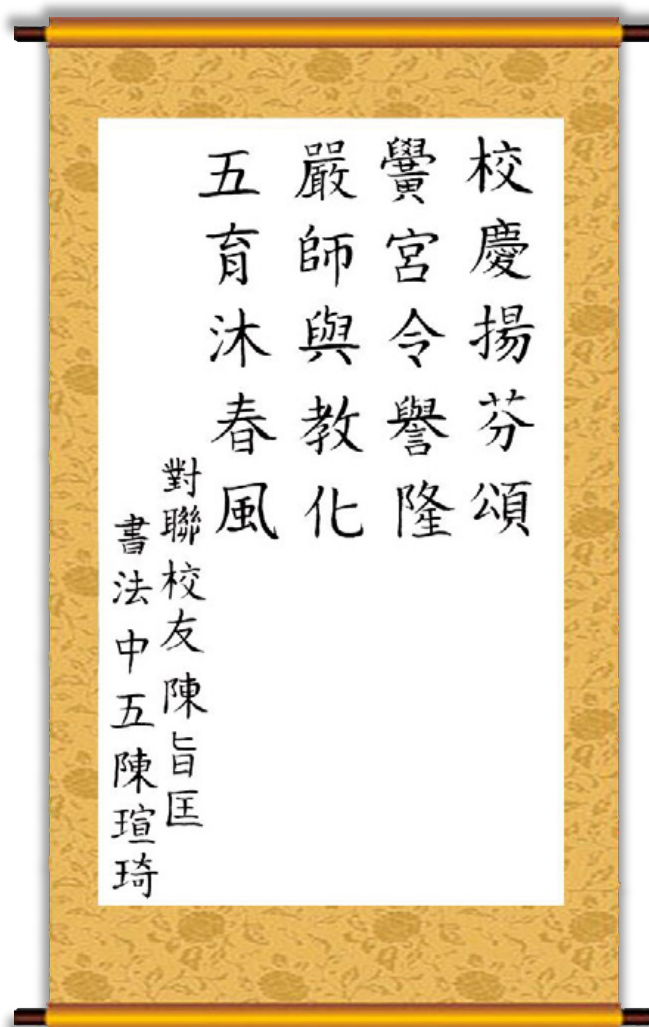 校慶揚芬頌
黌宮令譽隆
嚴師與教化
五育沐春風
對聯校友陳旨匡
書法中五陳瑄琦